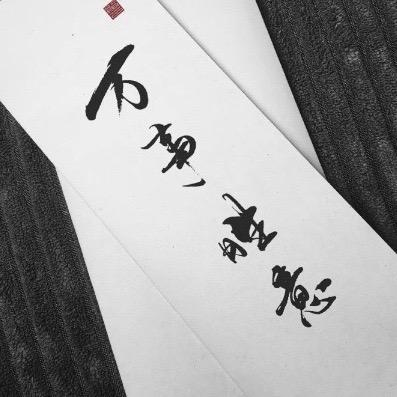 万事胜意